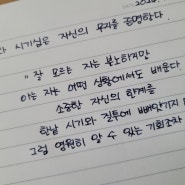 시기심은 자신의 무지를 증명한다.
" 잘 모르는 자는 분노하지만
아는 자는 어떤 상황에서도 배운다.
소중한 자신의 한계를
한낱 시기와 질투에 빼앗기지
그럼 영원히 알 수 있는 기회조차